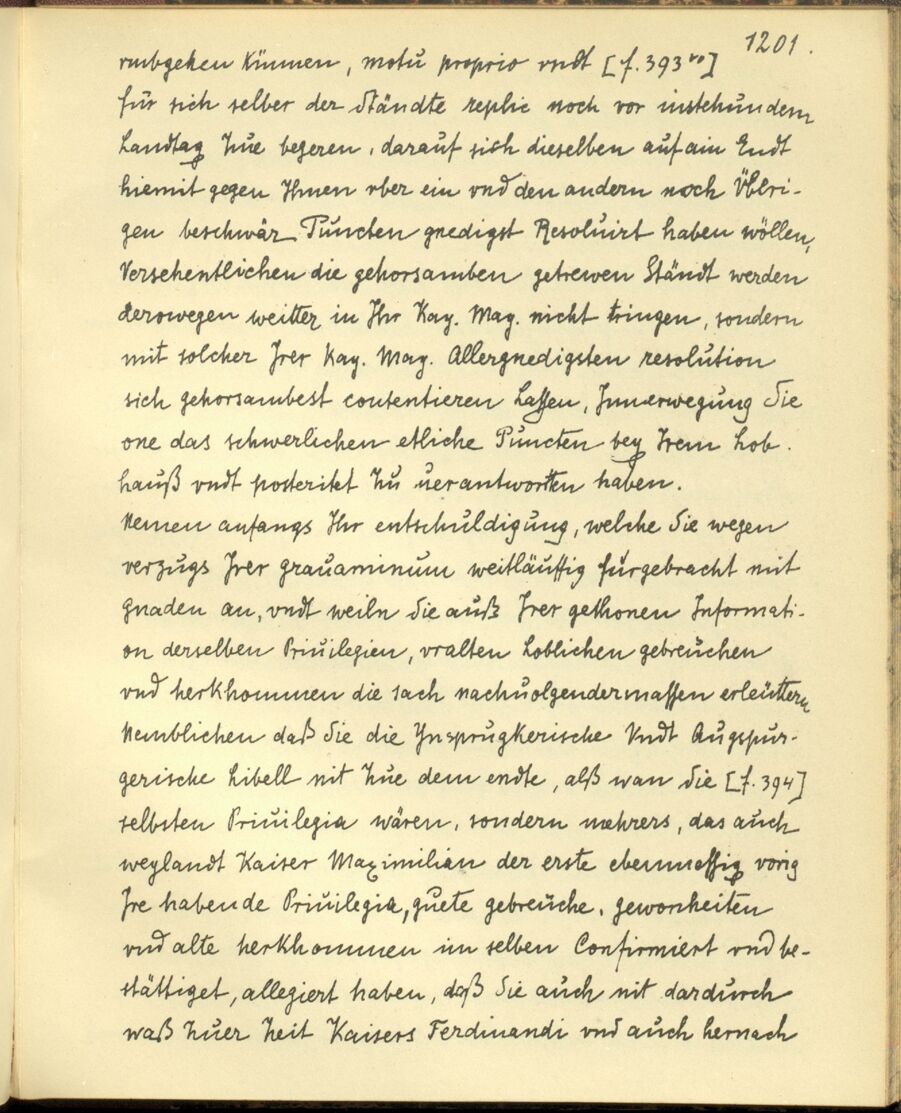 1201.
vmbgehen Künnen, motu proprio vndt [f. 393vo]
für sich selber der Ständte replic noch vor instehundem
Landtag Zue begeren, darauf sich dieselben auf ain Endt
hiemit gegen Ihnen vber ein vnd den andern noch Übri-
gen beschwär Puncten gnedigst Resoluirt haben wöllen,
Versehentlichen die gehorsamben getrewen Ständt werden
derowegen weitter in Ihr Kay. May. nicht tringen, sondern
mit solcher Irer Kay. May. Allergnedigsten resolution
sich gehorsambest contentieren Lassen, Innerwegung Sie
one das schwerlichen etliche Puncten bey Irem Lob.
hauß vndt posteritet Zu uerantwortten haben.
Nemen anfangs Ihr entschuldigung, welche Sie wegen
verzugs Irer grauaminum weitläuffig fürgebracht mit
Gnaden an, vndt weiln Sie auß Irer gethonen Informati-
on derselben Priuilegien, vralten Loblichen gebreuchen
vnd herkhommen die sach nachuolgendermassen erleüttern
Nemblichen daß Sie die Ynsprugkerische Vndt Augspur-
gerische Libell nit Zue dem endte, alß wan die [f. 394]
selbsten Priuilegia wären, sondern mehrers, das auch
weylandt Kaiser Maximilian der erste ebenmessig vorig
Ire habende Priuilegia, guete gebreüche, gewonheiten
vnd alte herkhommen im selben Confirmiert vnd be-
stättiget, allegiert haben, daß Sie auch nit dardurch
waß Zuer Zeit Kaisers Ferdinandi vnd auch hernach